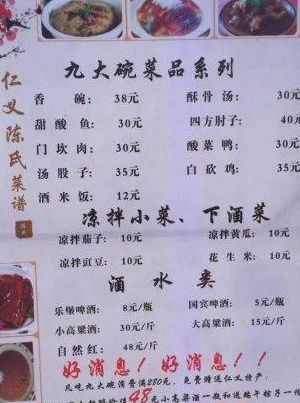 仁义陈氏菜谱
九大碗菜品系列
香碗: 38元 酥骨汤: 30元
甜酸鱼: 30元 四方肘子: 40元
门坎肉: 30元 酸菜鸭: 30元
汤股子: 35元 白砍鸡: 35元
酒米饭: 12元
凉拌小菜、下酒菜
凉拌茄子: 10元 凉拌黄瓜: 10元
凉拌豇豆: 10元 花生米: 10元
酒水类
乐堡啤酒: 8元/瓶 国宾啤酒: 5元/瓶
小高粱酒: 30元/斤 大高粱酒: 15元/斤
自然红: 48元/斤
好消息! 好消息!!
凡吃九大碗消费满280元, 免费赠送仁义特产:
48元小高粱酒一瓶和送端午粽子一